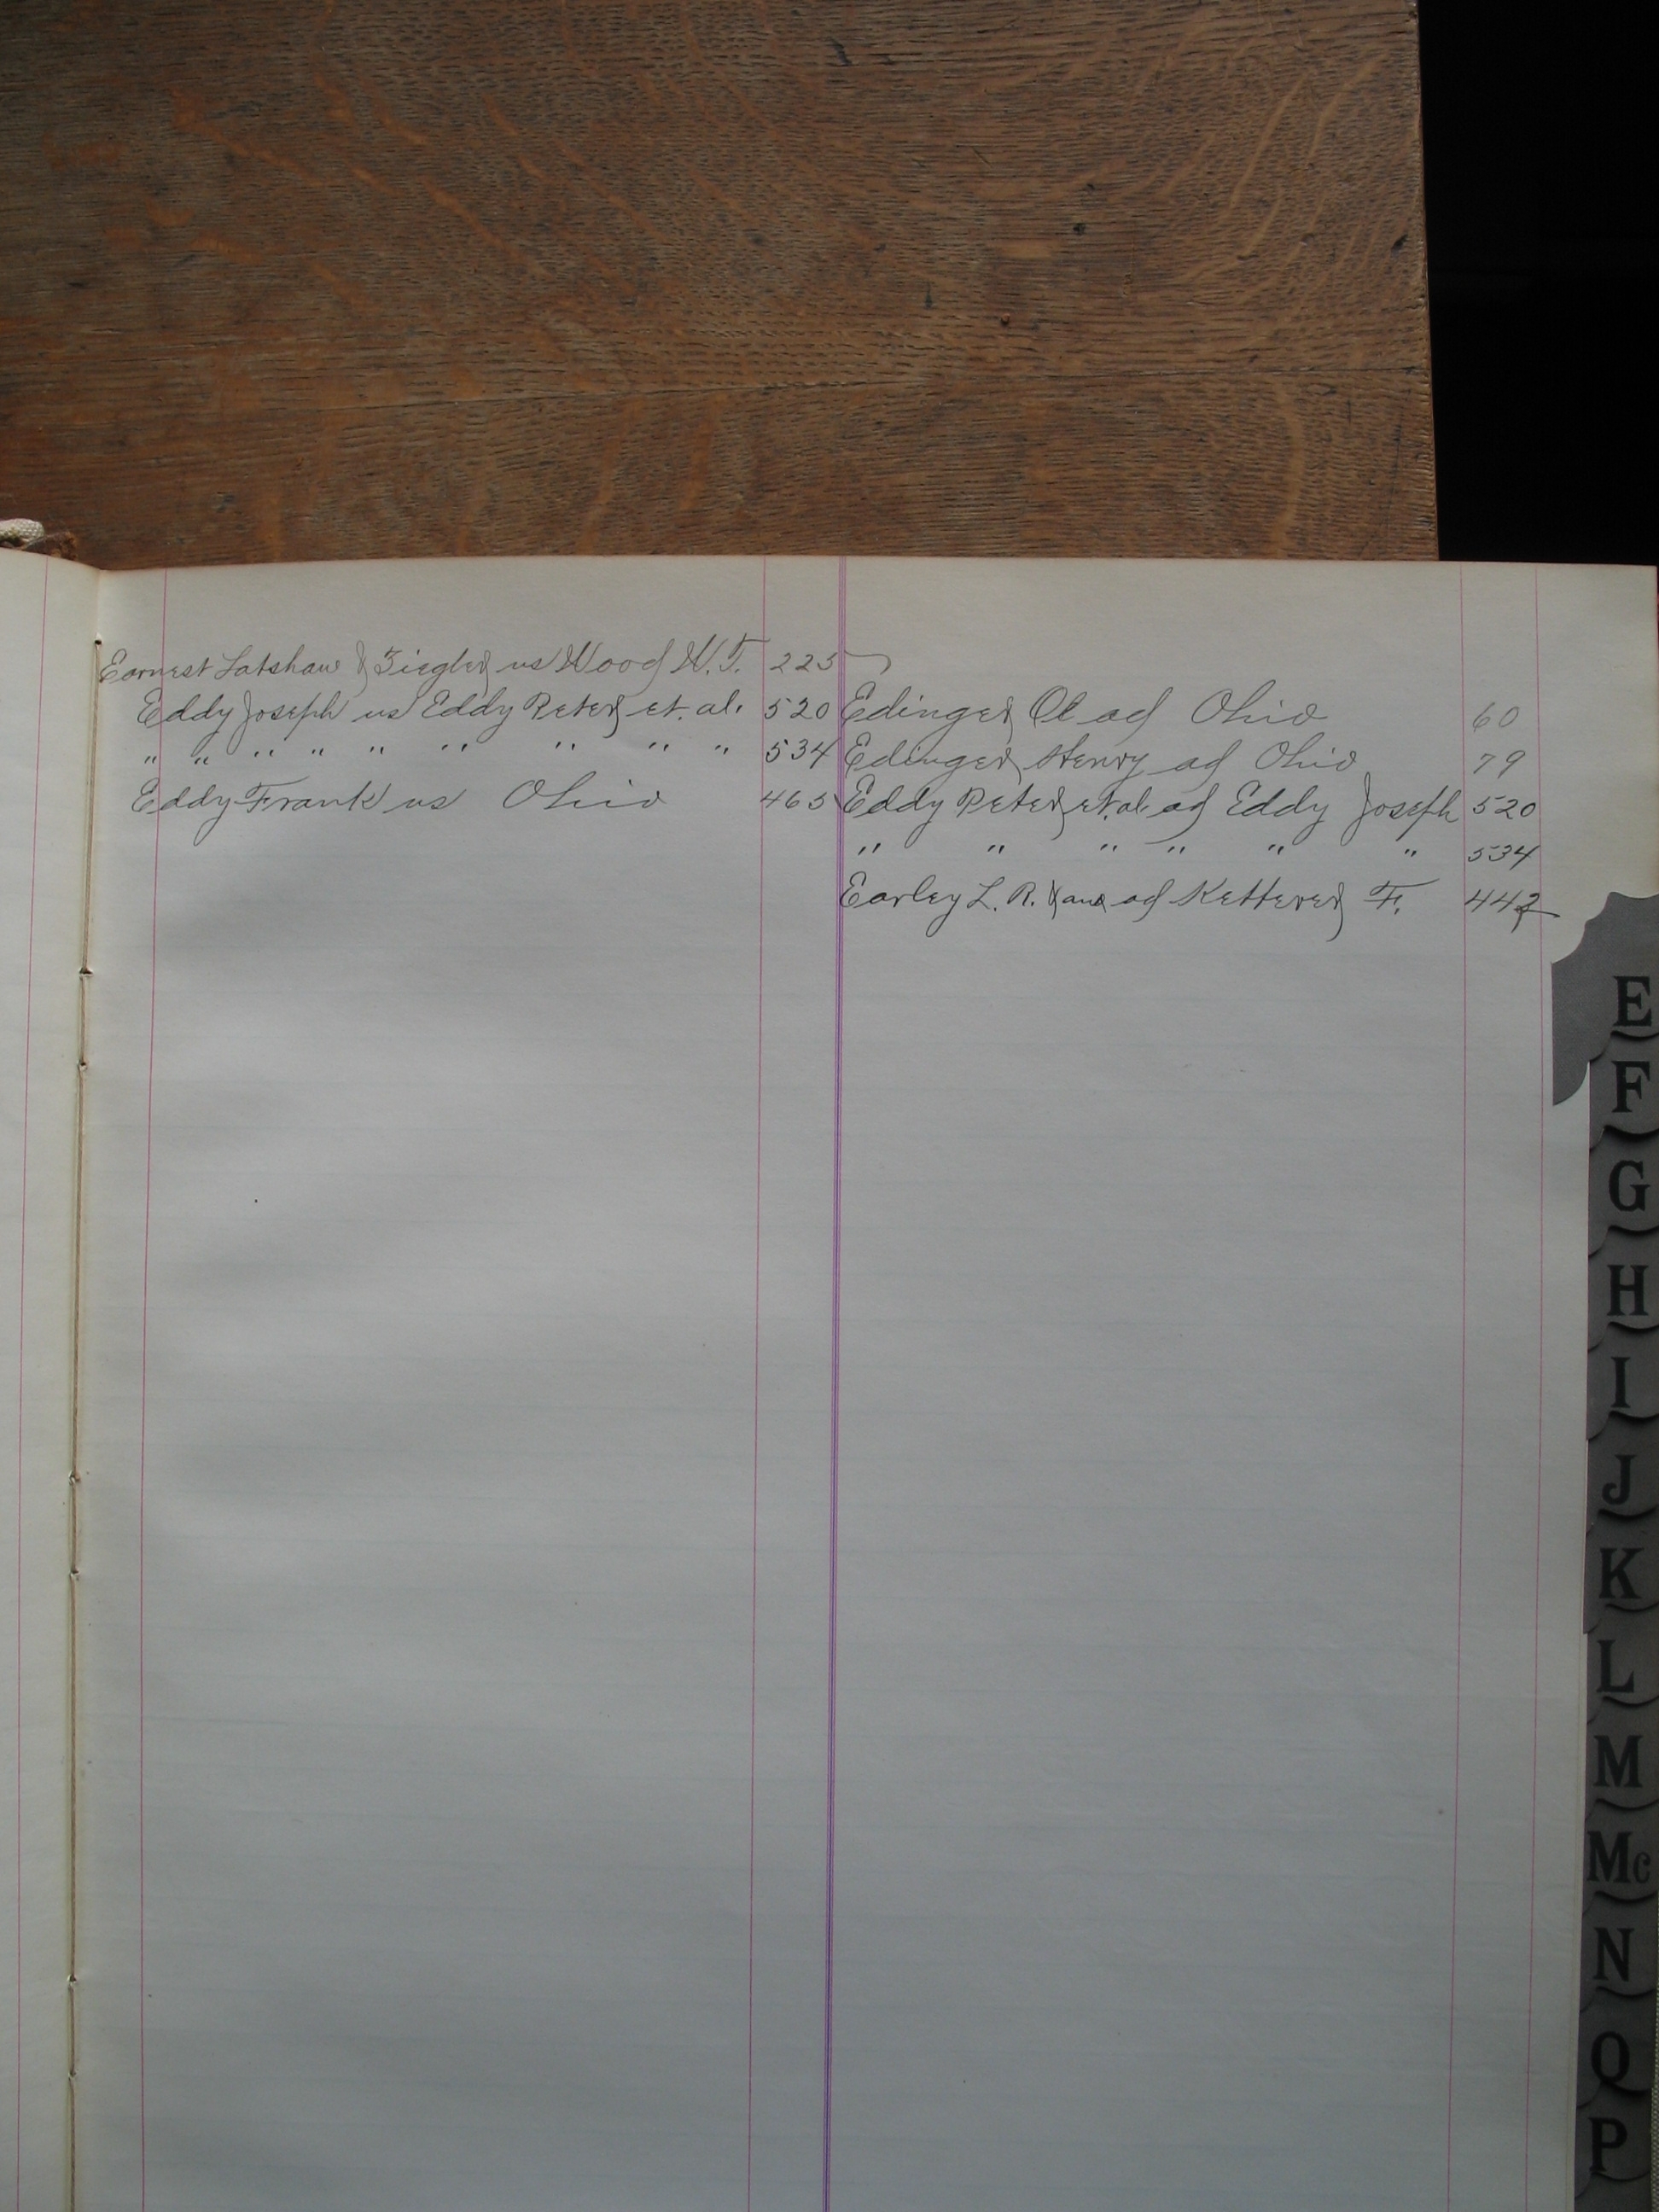 Earnest Latshaw & Ziegler vs Wood W. T. 225
Eddy Joseph vs Eddy Peter et. al. 520
" " " " " " " " " 534
Eddy Frank vs Ohio 465
Edinger Al ad Ohio 60
Edinger Henry ad Ohio 79
Eddy Peter et. al ad Eddy Joseph 520
" " " " " " 534
Earley L. R. & ad Ketterer F. 442
E
F
G
H
I
J
K
L
M
Mc
N
O
P